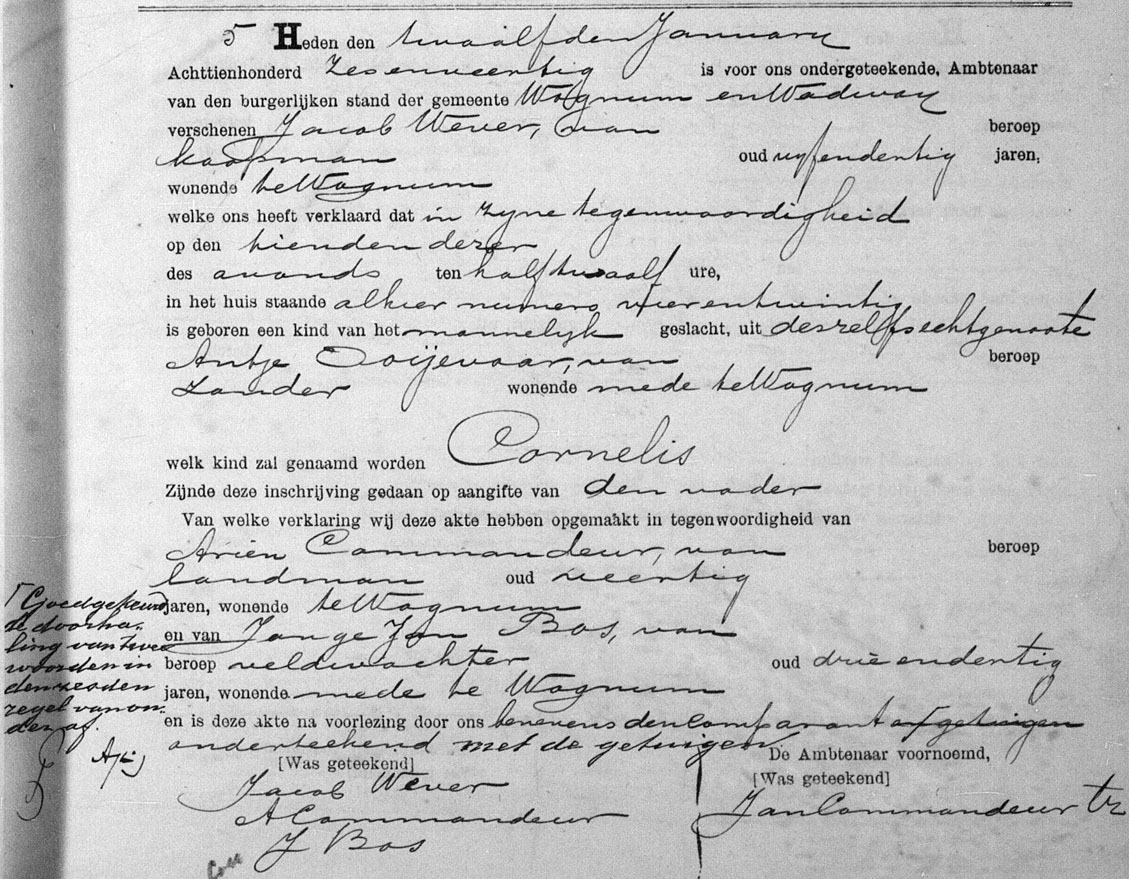 5 Heden den twaalfden January
Achttienhonderd Zesenveertig is voor ons ondergeteekende, Ambtenaar
van den burgerlijken stand der gemeente Wognum en Wadway
verschenen Jacob Wever, van beroep
koopman oud vyfendertig jaren,
wonende te Wognum
welke ons heeft verklaard dat in zyne tegenwoordigheid
op den tienden dezer
des avonds ten half twaalf ure,
in het huis staande alhier numero vierentwintig
is geboren een kind van het mannelyk geslacht, uit deszelfs echtgenoote
Antje Ooijevaar, van beroep
zonder wonende mede te Wognum
welk kind zal genaamd worden Cornelis
Zijnde deze inschrijving gedaan op aangifte van den vader
Van welke verklaring wij deze akte hebben opgemaakt in tegenwoordigheid van
Ariën Commandeur, van beroep
landman oud veertig
jaren, wonende te Wognum
en van Jonge Jan Bos, van
beroep veldwachter oud drieendertig
jaren, wonende mede te Wognum
en is deze akte na voorlezing door ons benevens den Comparant
onderteekend met de getuigen
Goedgekeurd
de doorha-
ling van twee
woorden in
den zesden
regel van on-
deraf.
[Was geteekend]
Jacob Wever
A Commandeur
J Bos
De Ambtenaar voornoemd,
[Was geteekend]
Jan Commandeur